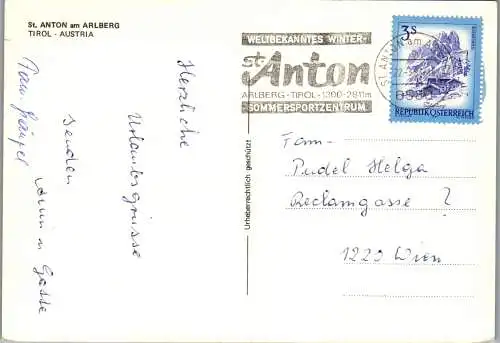 St. ANTON am ARLBERG
TIROL - AUSTRIA
WELTBEKANNTES WINTER-
st. Anton
ARLBERG - TIROL - 1300-2811m
SOMMERSPORTZENTRUM
3s
REPUBLIK ÖSTERREICH
ST. ANTON am
Urheberrechtlich geschützt
Herzliche
Urlaubsgrüsse
senden
Fam.
Fam.
Pudel Helga
Reclamgasse 7
1223 Wien